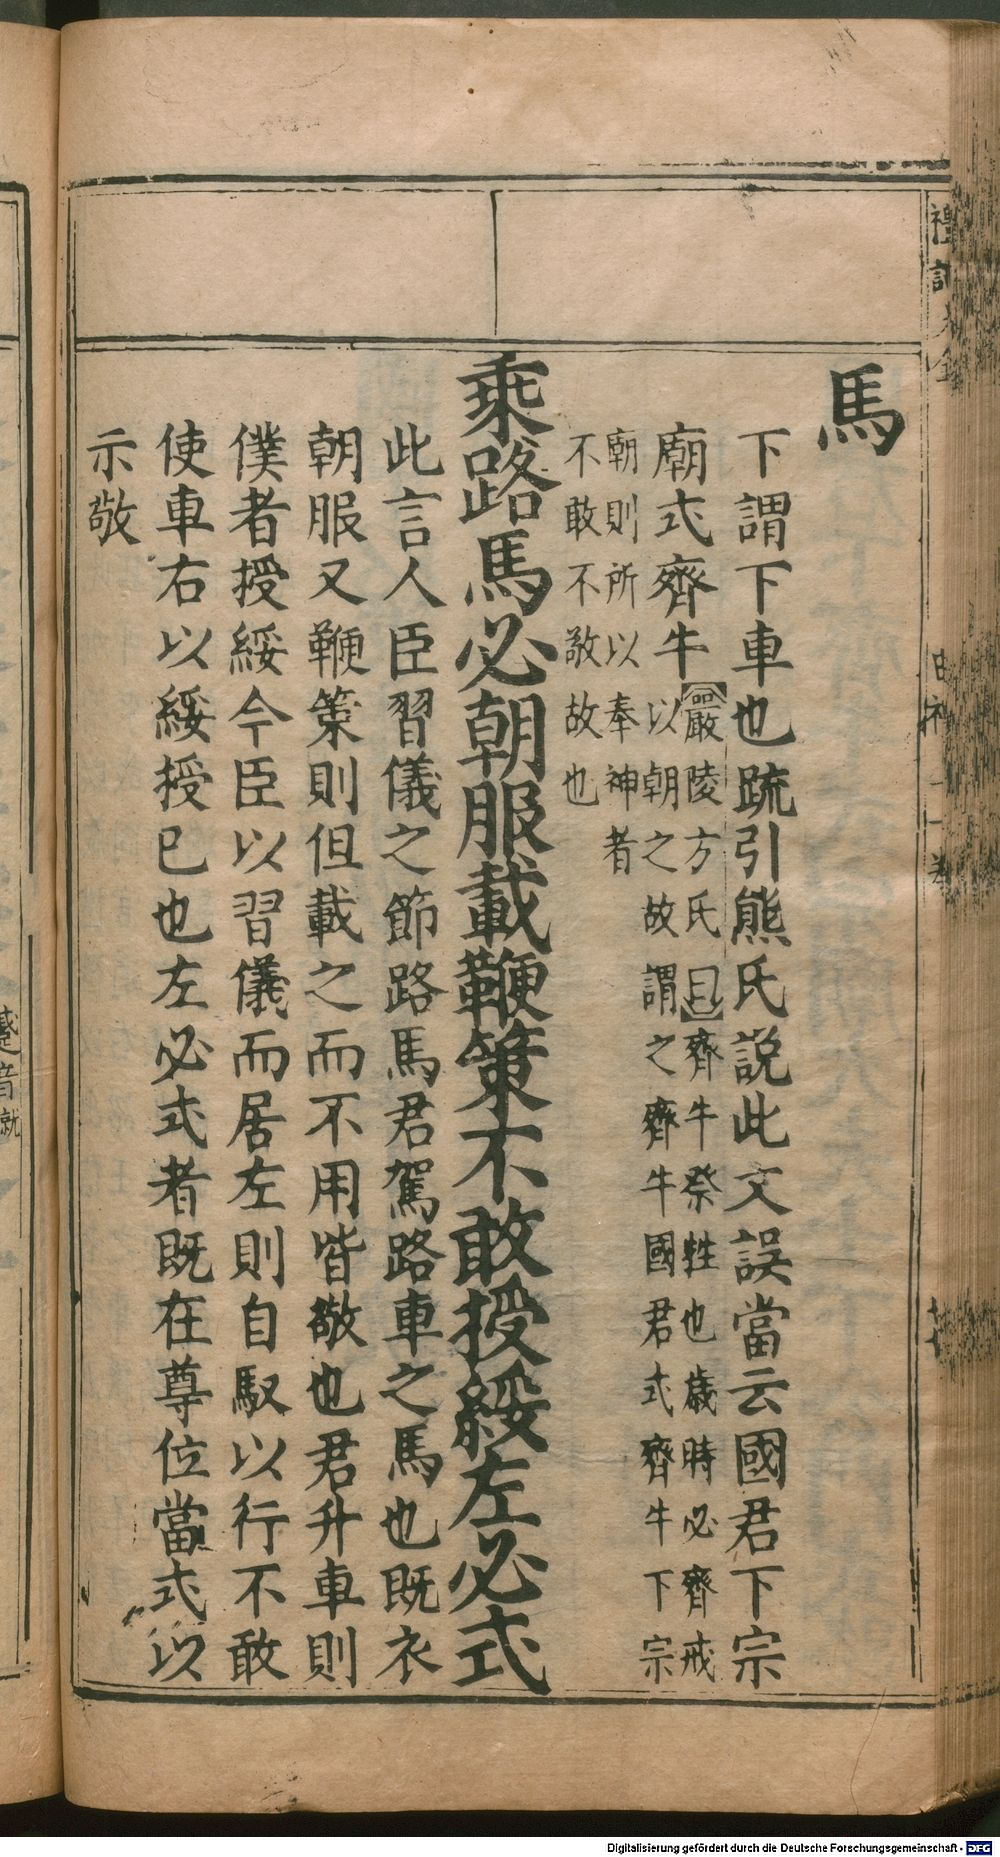 禮記大全
馬
下謂下車也䟽引熊氏説此文誤當云國君下宗
廟式齊牛
【嚴陵方氏曰】齊牛祭牲也歲時必齊戒
以朝之故謂之齊牛國君式齊牛下宗
廟則所以奉神者
不敢不敬故也
乘路馬必朝服載鞭策不敢授綏左必式
此言人臣習儀之節路馬君駕路車之馬也既衣
朝服又鞭策則但載之而不用皆敬也君升車則
僕者授綏今臣以習儀而居左則自馭以行不敢
使車右以綏授已也左必式者既在尊位當式以
示敬
蹙音就
Digitalisierung gefördert durch die Deutsche Forschungsgemeinschaft - DFG